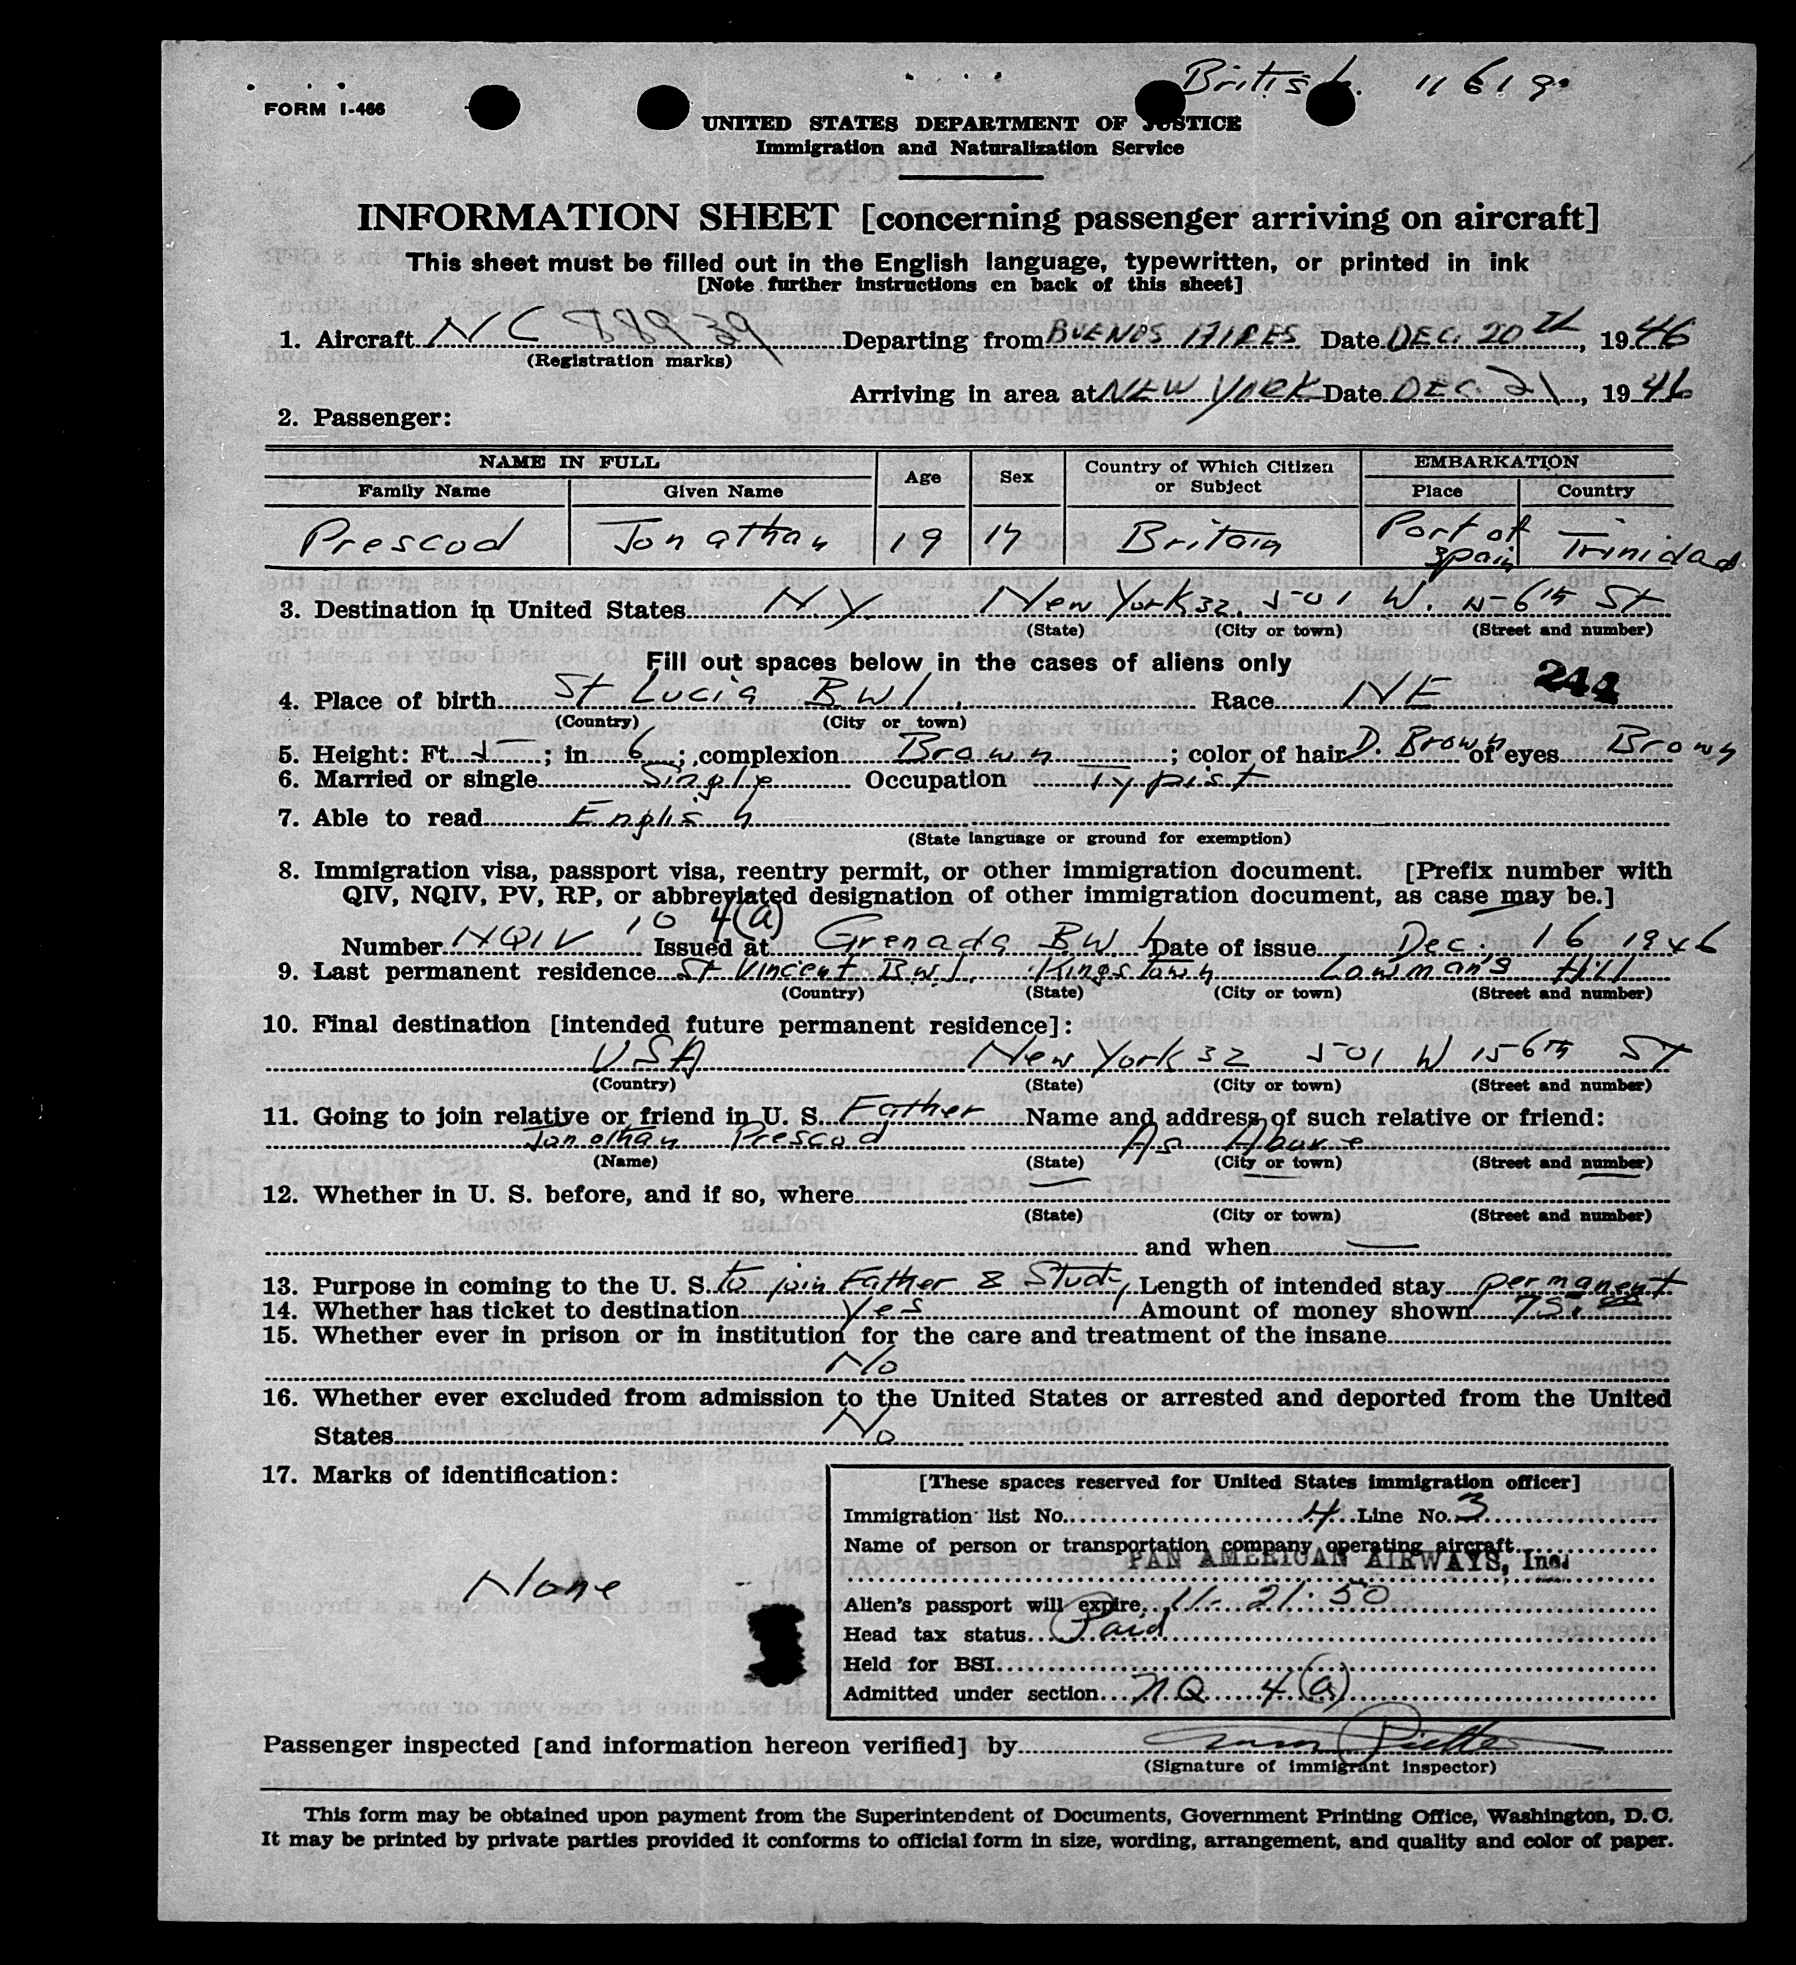 British. 11 6 1 9.
FORM I-466
UNITED STATES DEPARTMENT OF JUSTICE
Immigration and Naturalization Service
INFORMATION SHEET [concerning passenger arriving on aircraft]
This sheet must be filled out in the English language, typewritten, or printed in ink
[Note further instructions on back of this sheet]
1. Aircraft NC 88939 Departing from BUENOS AIRES Date DEC. 20th, 1946
(Registration marks)
Arriving in area at NEW YORK Date DEC. 21, 1946
2. Passenger:
NAME IN FULL Age Sex Country of Which Citizen or Subject EMBARKATION
Family Name Given Name Place Country
Prescod Jonathan 19 M Britain Port of Spain Trinidad
3. Destination in United States N.Y. New York 32. 501 W. 156th St
(State) (City or town) (Street and number)
Fill out spaces below in the cases of aliens only
244
4. Place of birth St Lucia BWI. Race NE
(Country) (City or town)
5. Height: Ft. 5; in. 6; complexion Brown; color of hair D. Brown of eyes Brown
6. Married or single Single Occupation Typist
7. Able to read English
(State language or ground for exemption)
8. Immigration visa, passport visa, reentry permit, or other immigration document. [Prefix number with
QIV, NQIV, PV, RP, or abbreviated designation of other immigration document, as case may be.]
Number NQIV 10 4(a) Issued at Grenada BWI Date of issue Dec. 16 1946
9. Last permanent residence St Vincent B.W.I. Kingstown Lowman's Hill
(Country) (State) (City or town) (Street and number)
10. Final destination [intended future permanent residence]:
USA New York 32 501 W 156th ST
(Country) (State) (City or town) (Street and number)
11. Going to join relative or friend in U. S. Father Name and address of such relative or friend:
Jonathan Prescod As Above
(Name) (State) (City or town) (Street and number)
12. Whether in U. S. before, and if so, where
(State) (City or town) (Street and number)
and when —
13. Purpose in coming to the U. S. to join Father & Study Length of intended stay permanent
14. Whether has ticket to destination Yes Amount of money shown 75.00
15. Whether ever in prison or in institution for the care and treatment of the insane
No
16. Whether ever excluded from admission to the United States or arrested and deported from the United
States No
17. Marks of identification:
None
[These spaces reserved for United States immigration officer]
Immigration list No. 4 Line No. 3
Name of person or transportation company operating aircraft
PAN AMERICAN AIRWAYS, Inc.
Alien's passport will expire 11-21-50
Head tax status Paid
Held for BSI
Admitted under section NQ 4(a)
Passenger inspected [and information hereon verified] by
(Signature of immigrant inspector)
This form may be obtained upon payment from the Superintendent of Documents, Government Printing Office, Washington, D. C.
It may be printed by private parties provided it conforms to official form in size, wording, arrangement, and quality and color of paper.